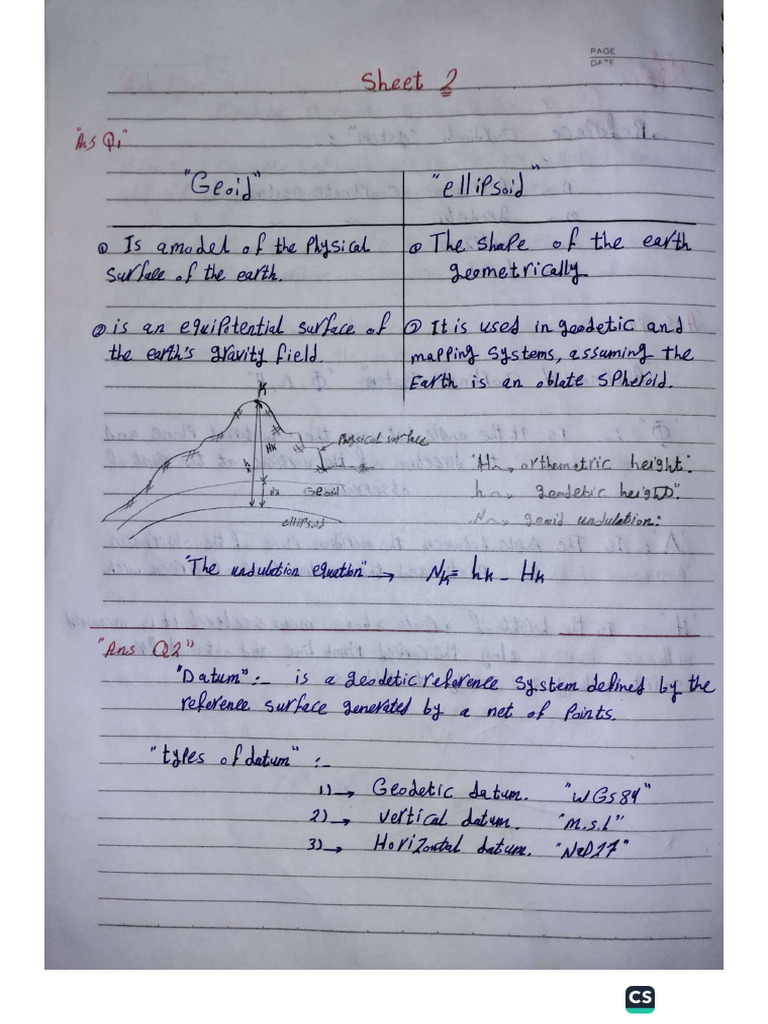 PAGE
DATE
Sheet 2
"Ans Q1"
"Geoid"
"ellipsoid"
① Is a model of the Physical
Surface of the earth.
② is an equipotential surface of
the earth's gravity field.
① The shape of the earth
geometrically
② It is used in geodetic and
mapping systems, assuming the
Earth is an oblate spheroid.
K
HK
h
NK
Physical surface
Geoid
ellipsoid
"H ~ orthometric height".
h ~ geodetic height".
N ~ geoid undulation:
"The undulation equation" → NK = hK - HK
"Ans Q2"
"Datum":- is a geodetic reference system defined by the
reference surface generated by a net of points.
"types of datum" :-
1) → Geodetic datum. "WGS84"
2) → vertical datum. "m.s.l"
3) → Horizontal datum. "NaD27"
CS